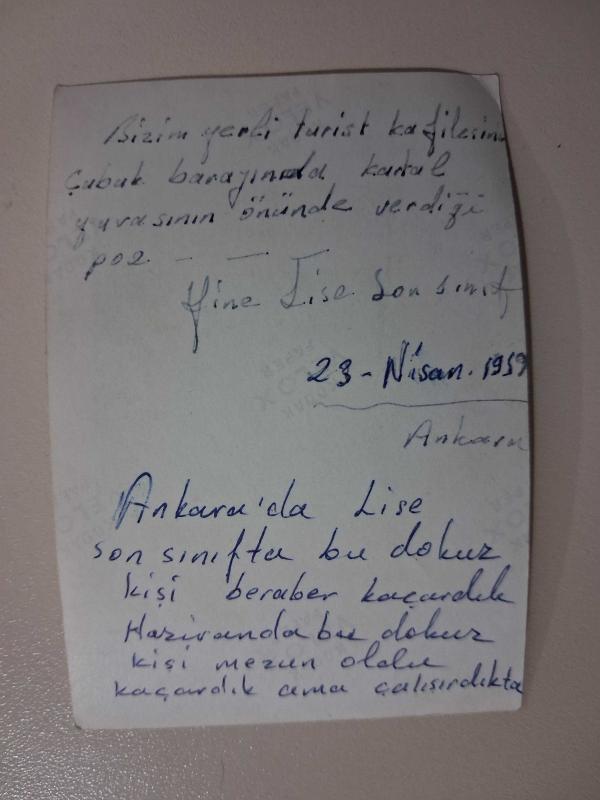 Bizim yerli turist kafilesinin
Çubuk barajında kartal
yuvasının önünde verdiği
poz - — —
Yine Lise Son sınıf
23 - Nisan. 1959
Ankara
Ankara'da Lise
son sınıfta bu dokuz
kişi beraber kaçardık
Haziranda bu dokuz
kişi mezun oldu
kaçardık ama çalışırdıkta